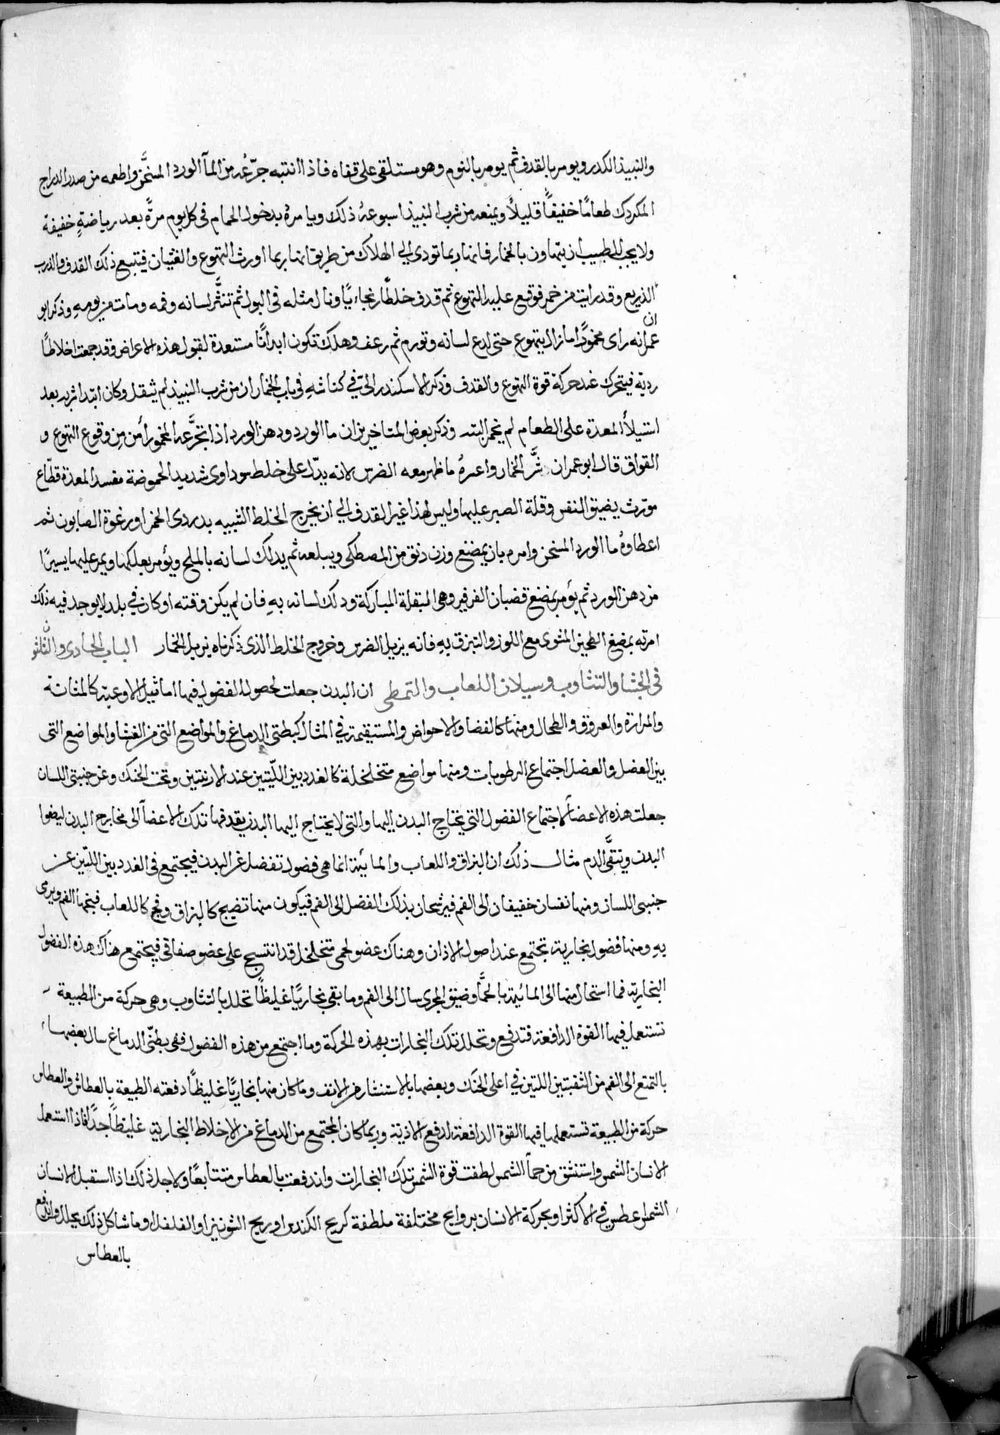 والنبيذ الكدر ويومر بالقدف ثم يومر بالنوم وهو مستلقى على قفاه فاذا انتبه جرّعه من المآ الورد المسخَّن واطعمه من صدر الدراج
المكردك طعامًا خفيفًا قليلًا ويمنعه من شرب النبيذ اسبوعهُ ذلك ويامرهُ بدخول الحمام فى كل يوم مرّة بعد رياضةٍ خفيفة
ولا يجب للطبيب ان يتهاون بالخمار فانها ربما تودى الى الهلاك من طريق انها ربما اورثت التهوع والغثيان فيتبع ذلك القدف والدرب
الذريع وقد رايت من خمر فوقع عليه التهوع ثم قدف خلطًا زنجاريًا ونال مثله فى البول ثم تنثّر لسانه وفمه ومات من يومه وذكر ابو
عمران انه راى مخمورًا ما زال يتهوع حتى لدع لسانه وتورم ثم رعف وهلك تكون ابدانًا مستعدة لقبول هذه الاعراض وقد جمعت اخلاطًا
ردية فيتحرك عند حركة قوة التهوع والقدف وذكر الاسكندرانى فى كناشهِ فى باب الخمار ان من شرب النبيذ لم يثقل وكان ابتدا شربه بعد
استيلاء المعدة على الطعام لم يخمر البته وذكر بعض المتاخرين ان ما الورد ودهن الورد اذا تجرَّعه المخمور أمن من وقوع التهوع و
الفواق قال ابو عمران شرَّ الخمار واعسرهُ ما ظهر معه الضرس لانه يدّل على خلط سوداوى شديد الحموضة مفسد المعدة قطّاع
مورث بضيق النفس وقلة الصبر عليها وليس لهذا غير القدف الى ان يخرج الخلط الشبيه بدردى الخمر او رغوة الصابون ثم
اعطاوهُ ما الورد المسخن وامره بان يمضغ وزن دنق من المصطكى ويبلعه ثم يدلك لسانه بالملح ويؤمر بعلكها ويمر عليها يسيرًا
من دهن الورد ثم يؤمر بمضغ قضبان الفرفير وهى المبقلة المباركة ودلك لسانه بهِ فان لم يكن وقته او كان فى بلد لا يوجد فيه ذلك
امرته بمضغ الطحين المشوى مع اللوز والتبزق بهِ فانه يزيل الضرس وخروج الخلط الذى ذكرناه يزيل الخمار الباب الحادى والثلثون
فى الجشا والتثاوب وسيلان اللعاب والتمطى ان البدن جعلت لحصول الفضول فيها اماثيل الاوعية كالمثانة
والمرارة والعروق والطحال ومنها كالفضا والاحواض والمستنقعة فى المثال كبطنى الدماغ والمواضع التى من الغشا والمواضع التى
بين العضل والعضل اجتماع الرطوبات ومنها مواضع متخلخلة كالغدد بين الليّتين عند الارنبتين وتحت الحنك وعن جنبتى اللسان
جعلت هذه الاعضأ لاجتماع الفضول التى يحتاج البدن اليها والتى لا يحتاج اليها البدن يقدفها تلك الاعضآ الى مخارج البدن ليصفوا
البدن وتنقَّى الدم مثال ذلك ان البزاق واللعاب والمائية انما هى فضول تفضل عن البدن فيجتمع فى الغدد بين اللتين عن
جنبى اللسان ومنها نفسان خفيفان الى الفم فيرشحان بذلك الفضل الى الفم فيكون منها نضيج كالبزاق وفج كاللعاب فيمجها الفم ويرمى
بهِ ومنها فضول بخارية تجتمع عند اصول الاذان وهناك عضو لحمى متخلخل قد انتسج على عضو صفاقى فيجتمع هناك هذه الفضول
البخارية فما استحال منها الى المائية بالحمَّا وضيق المجرى سال الى الفم وما بقى بخاريًا غليظًا تحلل بالتثاوب وهى حركة من الطبيعة
تستعمل فيها القوة الدافعة فتدفع وتحلل تلك البخارات بهذه الحركة وما اجتمع من هذه الفضول ففى بطنّى الدماغ سال بعضها
بالتمنع الى الفم من الثقبتين اللتين فى اعلى الحنك وبعضها بالاستنشار من الانف وما كان منها بخاريًا غليظًا دفعته الطبيعة بالعطاس والعطاس
حركة من الطبيعة تستعملها فيها القوة الدافعة لدفع الاذية وربما كان المجتمع من الدماغ من الاخلاط البخارية غليظًا جدًا فاذا استعمل
الانسان الشمس واستنشق من حمآ الشمس لطفت قوة الشمس تلك البخارات واندفعت بالعطاس متتابعًا ولاجل ذلك اذا استقبل الانسان
الشمس عطس فى الاكثر او بحركة الانسان بروايح مختلفة ملطفة كريح الكندس او ريح الشونيز او الفلفل او ما شاكل ذلك يحلل واندفع
بالعطاس